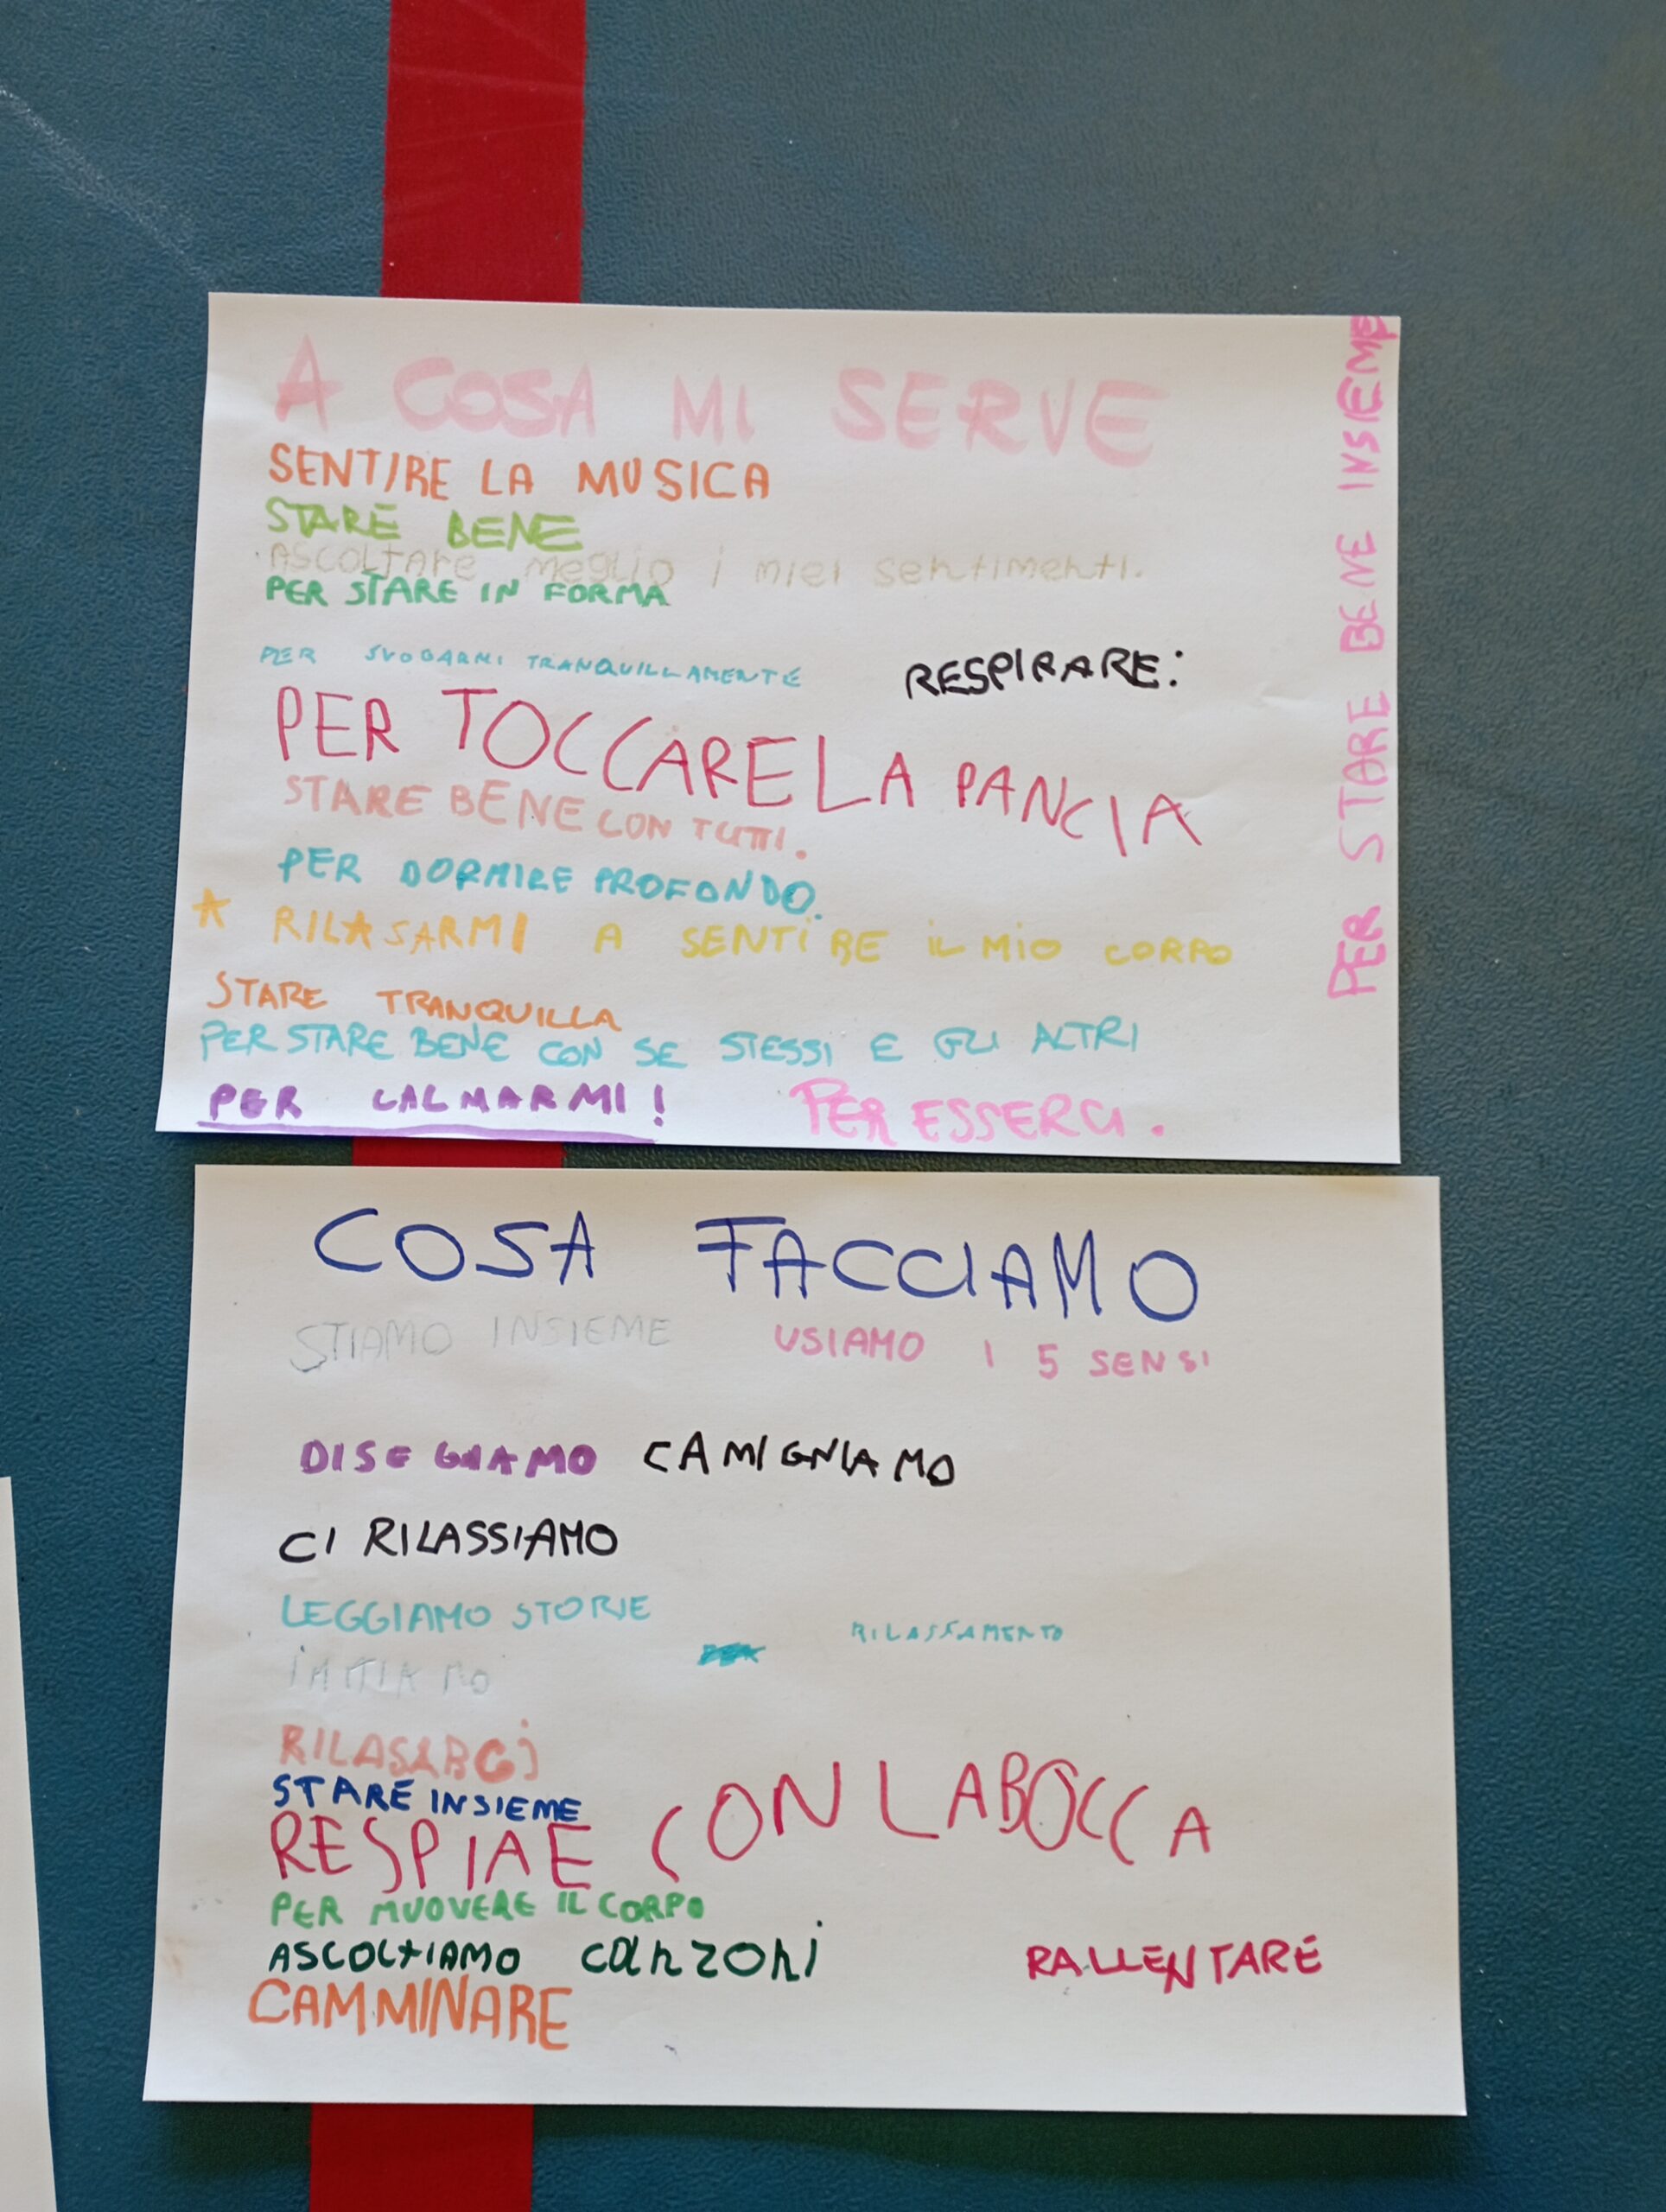 A COSA MI SERVE
SENTIRE LA MUSICA
STARE BENE
ASCOLTARE MEGLIO i miei sentimenti.
PER STARE IN FORMA
PER SVOGARMI TRANQUILLAMENTE
RESPIRARE:
PER TOCCARE LA PANCIA
STARE BENE CON TUTTI.
PER DORMIRE PROFONDO.
RILASARMI A SENTIRE IL MIO CORPO
STARE TRANQUILLA
PER STARE BENE CON SE STESSI E GLI ALTRI
PER CALMARMI!
PER ESSERCI.
PER STARE BENE INSIEME
COSA FACCIAMO
STIAMO INSIEME
USIAMO I 5 SENSI
DISEGNAMO
CAMIGNIAMO
CI RILASSIAMO
LEGGIAMO STORIE
RILASSAMENTO
RILASARCI
STARE INSIEME
RESPIAE CON LA BOCCA
PER MUOVERE IL CORPO
ASCOLTIAMO canzoni
RALLENTARE
CAMMINARE